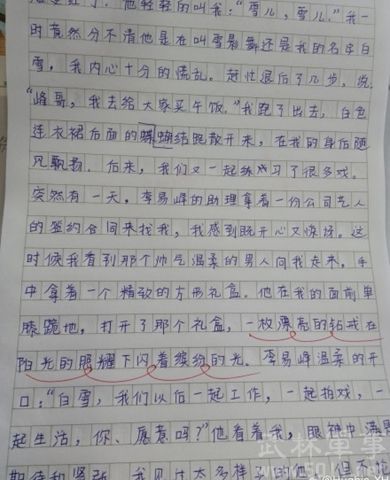 他轻轻的叫我:“雪儿,雪儿。”我一
时竟然分不清他是在叫雪舞还是我的名字白
雪,我内心十分的慌乱。赶忙退后了几步,说:
“峰哥,我去给大家买午饭。”我跑了出去,白色
连衣裙后面的蝴蝶结跑散开来,在我的身后随
风飘舞。后来,我们又一起练习了很多戏。
突然有一天,李易峰的助理拿着一份公司艺人
的签约合同来找我,我感到既开心又惊讶。这
时候我看到那个帅气温柔的男人向我走来,手
中拿着一个精致的方形礼盒。他在我的面前单
膝跪地,打开了那个礼盒,一枚漂亮的钻戒在
阳光的照耀下闪着缤纷的光。李易峰温柔的开
口:“白雪,我们以后一起工作,一起拍戏,一
起生活,你、愿意吗?”他看着我,眼神中满是
期待和紧张。我见过太多样子的他,但不
武林军事